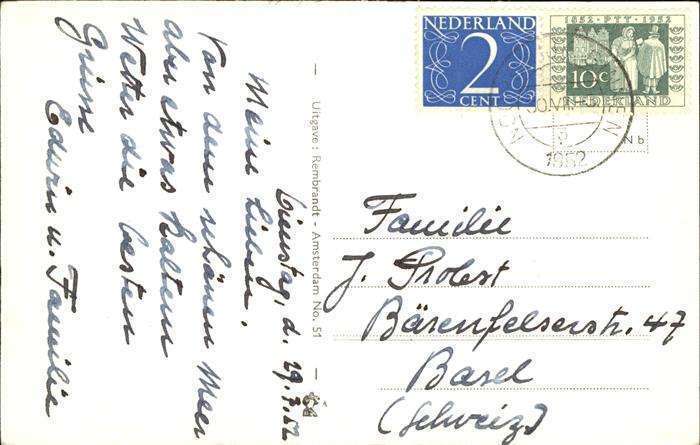 Dienstag, d. 29.7.52
Meine Lieben,
Von dem schönen Meer
aber etwas kaltem
Wetter die besten
Grüsse
Edwin u. Familie
Uitgave: Rembrandt - Amsterdam No. 51
NEDERLAND
2
CENT
1852 · PTT · 1952
10c
NEDERLAND
1952
N b
Familie
J. Probst
Bärenfelserstr. 47
Basel
(Schweiz)